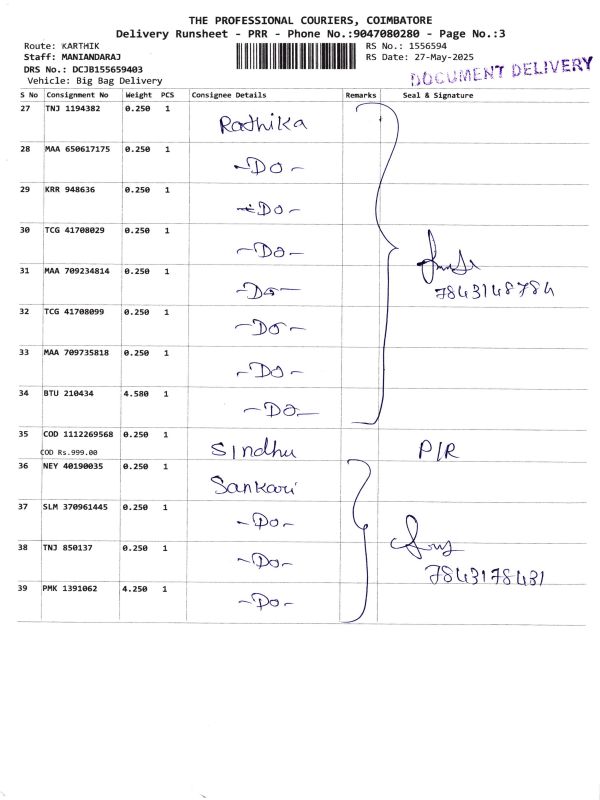 THE PROFESSIONAL COURIERS, COIMBATORE
Delivery Runsheet - PRR - Phone No.:9047080280 - Page No.:3
Route: KARTHIK RS No.: 1556594
Staff: MANIANDARAJ RS Date: 27-May-2025
DRS No.: DCJB155659403
Vehicle: Big Bag Delivery
DOCUMENT DELIVERY
S No Consignment No Weight PCS Consignee Details Remarks Seal & Signature
27 TNJ 1194382 0.250 1 Radhika
28 MAA 650617175 0.250 1 -Do-
29 KRR 948636 0.250 1 -Do-
30 TCG 41708029 0.250 1 -Do-
31 MAA 709234814 0.250 1 -Do-
7843148784
32 TCG 41708099 0.250 1 -Do-
33 MAA 709735818 0.250 1 -Do-
34 BTU 210434 4.580 1 -Do-
35 COD 1112269568 0.250 1 Sindhu P/R
COD Rs.999.00
36 NEY 40190035 0.250 1 Sankari
37 SLM 370961445 0.250 1 -Do-
38 TNJ 850137 0.250 1 -Do-
7843178431
39 PMK 1391062 4.250 1 -Do-